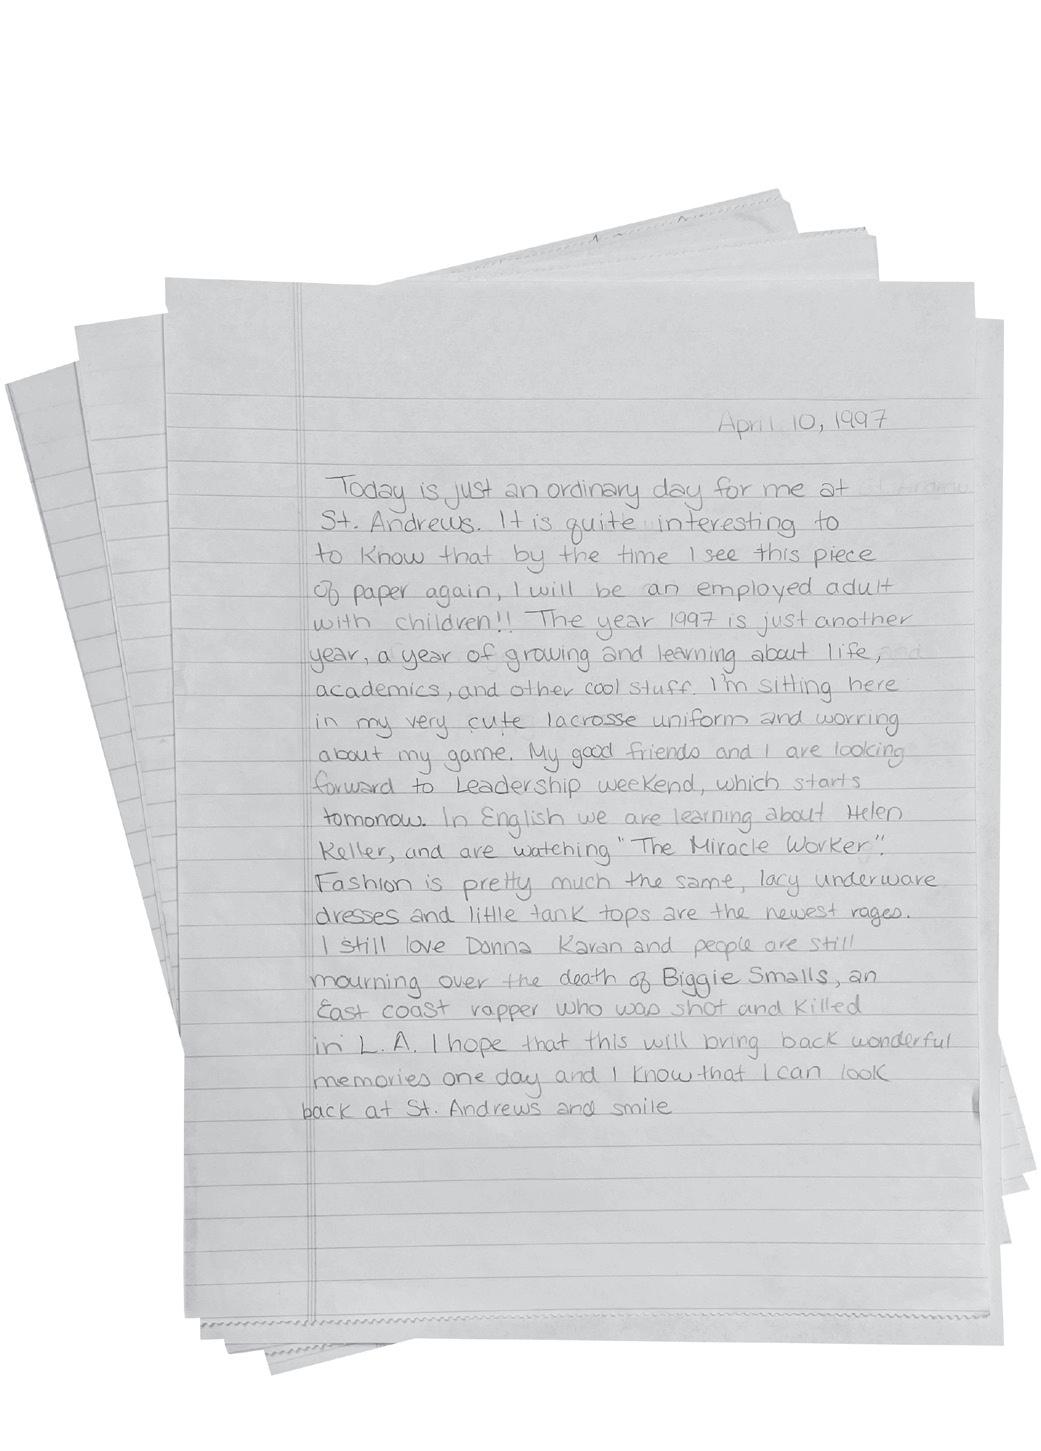 April 10, 1997
Today is just an ordinary day for me at
St. Andrews. It is quite interesting to
to know that by the time I see this piece
of paper again, I will be an employed adult
with children!! The year 1997 is just another
year, a year of growing and learning about life,
academics, and other cool stuff. I'm sitting here
in my very cute lacrosse uniform and worring
about my game. My good friends and I are looking
forward to Leadership weekend, which starts
tomorrow. In English we are learning about Helen
Keller, and are watching "The Miracle Worker".
Fashion is pretty much the same, lacy underware
dresses and little tank tops are the newest rages.
I still love Donna Karan and people are still
mourning over the death of Biggie Smalls, an
East coast rapper who was shot and killed
in L.A. I hope that this will bring back wonderful
memories one day and I know that I can look
back at St. Andrews and smile